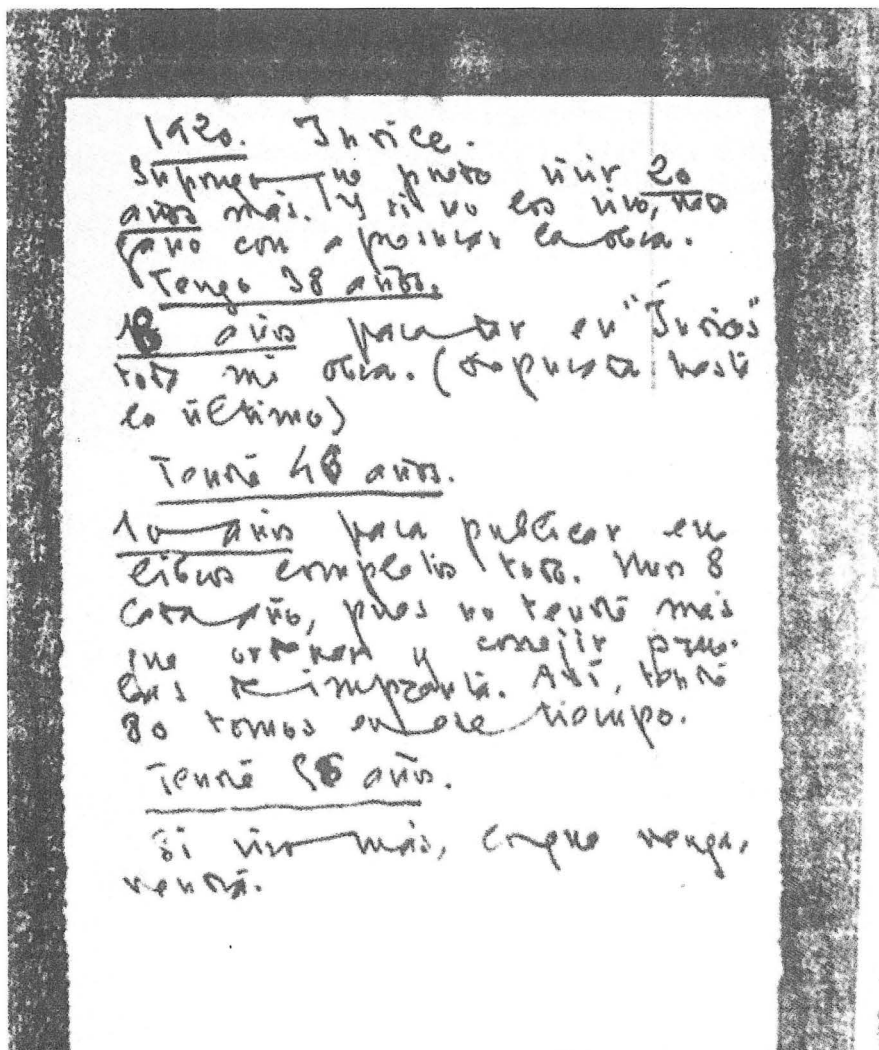 1920. Índice.
Supongo que puedo vivir 20
años más. Y si no los vivo, nada
gano con apresurar la obra.
Tengo 38 años.
10 años para dar en "Índices"
toda mi obra. (depurada hasta
lo último)
Tendré 48 años.
10 años para publicar en
libros completos todo. Unos 8
cada año, pues no tendré más
que ordenar y correjir prue-
bas de imprenta. Así, tendré
80 tomos en ese tiempo.
Tendré 58 años.
Si vivo más, lo que venga,
vendrá.